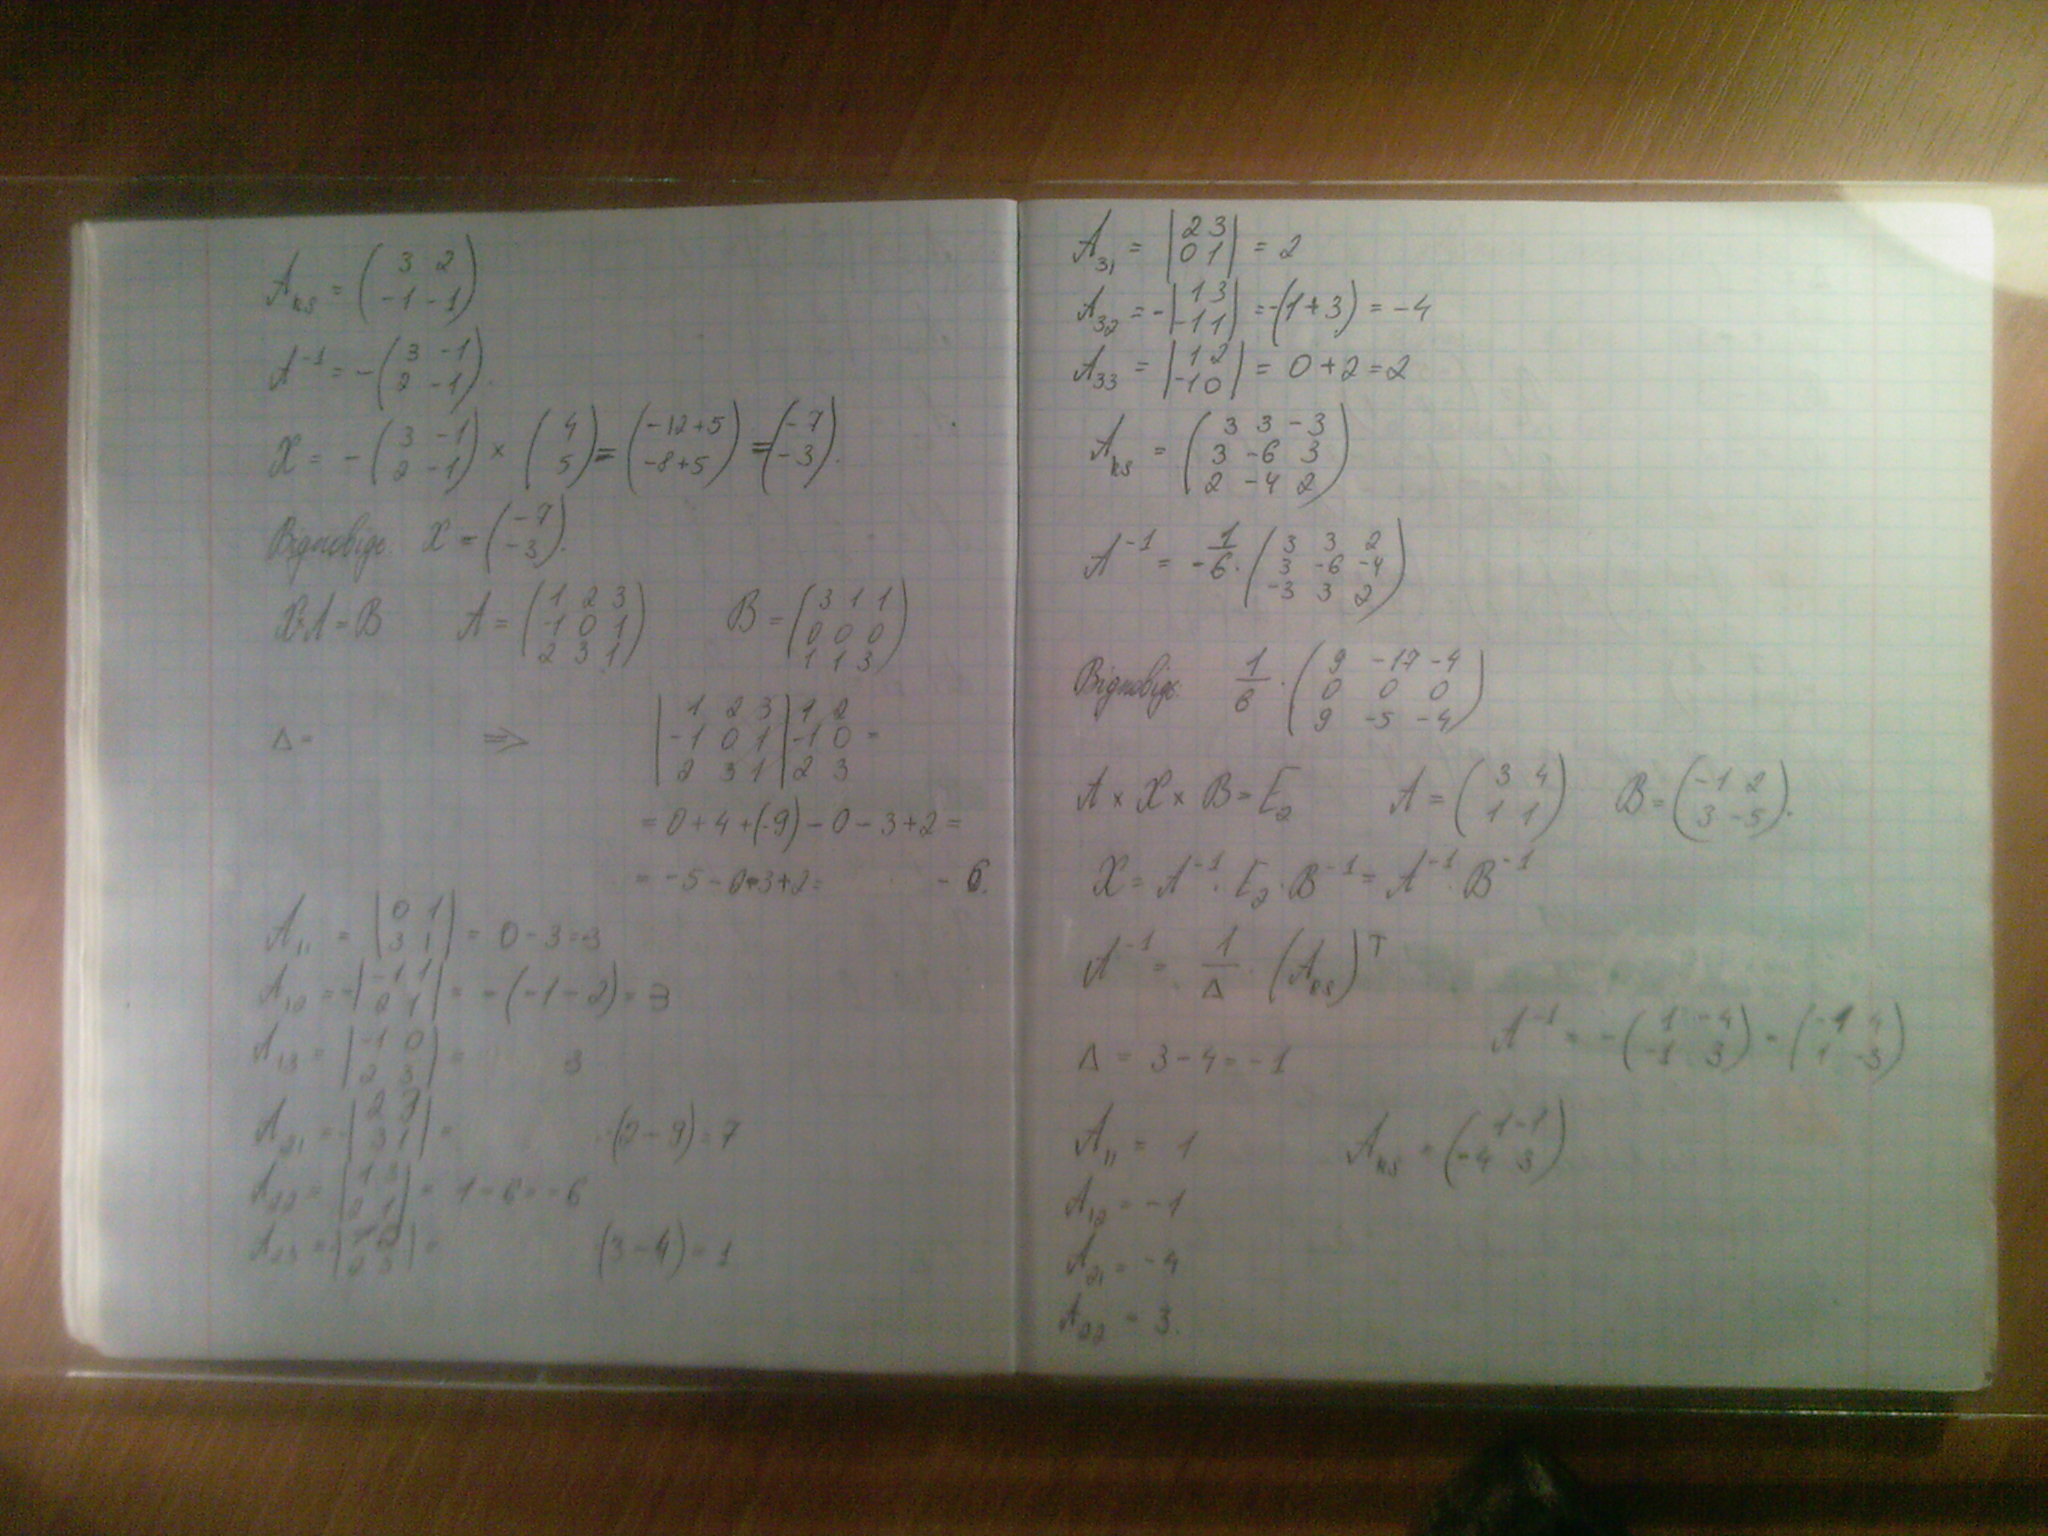 A_ks = (3 2; -1 -1)
A^-1 = -(3 -1; 2 -1).
X = -(3 -1; 2 -1) × (4; 5) = (-12+5; -8+5) = (-7; -3).
Відповідь: X = (-7; -3).
X·A = B A = (1 2 3; -1 0 1; 2 3 1) B = (3 1 1; 0 0 0; 1 1 3)
Δ = ⇒ |1 2 3; -1 0 1; 2 3 1| 1 2; -1 0; 2 3 =
= 0+4+(-9)-0-3+2 =
= -5-0-3+2= -6.
A_11 = |0 1; 3 1| = 0-3=-3
A_12 = -|-1 1; 2 1| = -(-1-2) = 3
A_13 = |-1 0; 2 3| = 3
A_21 = -|2 3; 3 1| = -(2-9) = 7
A_22 = |1 3; 2 1| = 1-6=-6
A_23 = -|1 2; 2 3| = (3-4) = 1
A_31 = |2 3; 0 1| = 2
A_32 = -|1 3; -1 1| = -(1+3) = -4
A_33 = |1 2; -1 0| = 0+2=2
A_ks = (3 3 -3; 3 -6 3; 2 -4 2)
A^-1 = 1/-6 · (3 3 2; 3 -6 -4; -3 3 2)
Відповідь: 1/6 · (9 -17 -4; 0 0 0; 9 -5 -4)
A × X × B = E_2 A = (3 4; 1 1) B = (-1 2; 3 -5).
X = A^-1 · E_2 · B^-1 = A^-1 · B^-1
A^-1 = 1/Δ · (A_ks)^T
A^-1 = -(1 -4; -1 3) = (-1 4; 1 -3)
Δ = 3-4 = -1
A_11 = 1 A_ks = (1 -1; -4 3)
A_12 = -1
A_21 = -4
A_22 = 3.